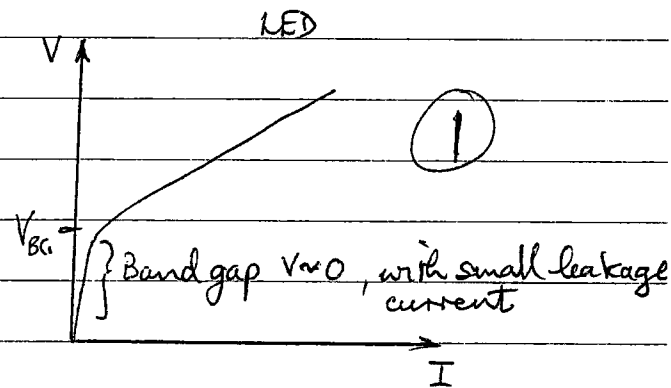 LED
V
1
V_BG
} Band gap V~0, with small leakage
current
I